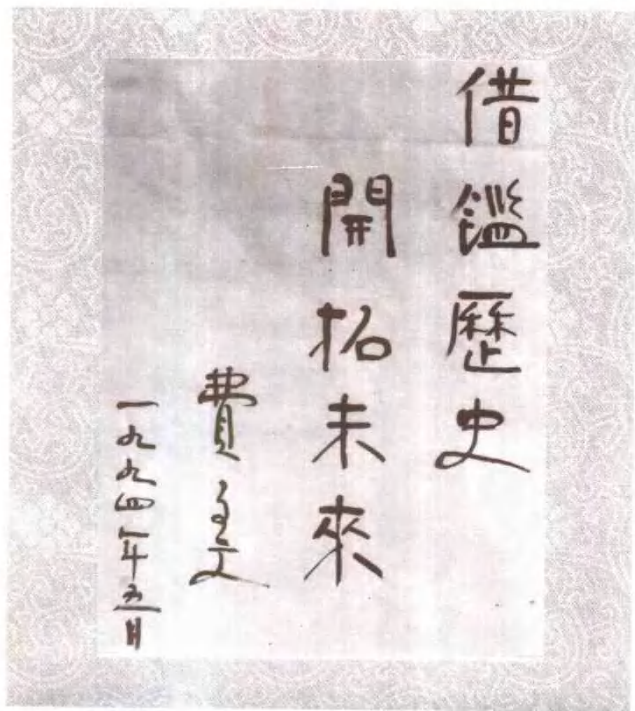 借鑑歷史
開拓未來
費孝文
一九九四年五月